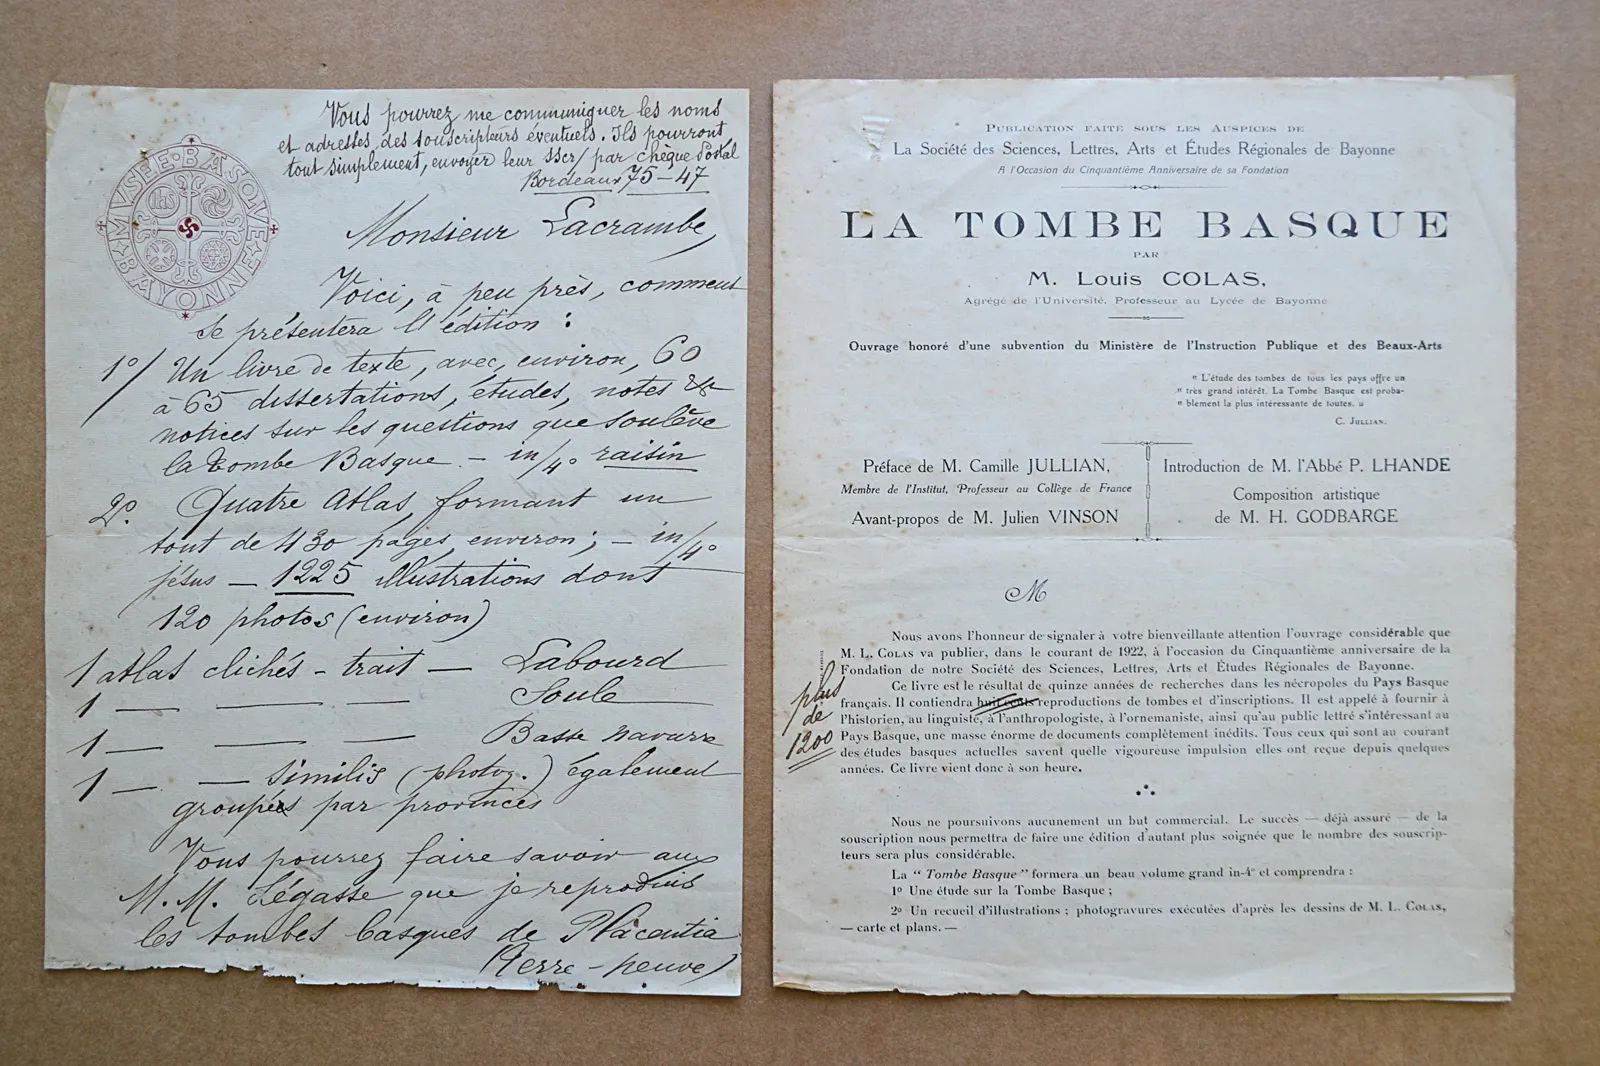 MUSEE·BASQUE
BAYONNE
Vous pourrez me communiquer les noms
et adresses des souscripteurs éventuels. Ils pourront,
tout simplement, envoyer leur par chèque Postal
Bordeaux 75-47
Monsieur Lacrambe,
Voici, à peu près, comment
se présentera l'édition :
1°/ Un livre de texte, avec, environ, 60
à 65 dissertations, études, notes &
notices sur les questions que soulève
la tombe Basque. - in/4° raisin
2°. Quatre Atlas, formant un
tout de 430 pages, environ; - in/4°
jésus - 1225 illustrations dont
120 photos (environ)
1 atlas clichés - trait — Labourd
1 — — — Soule
1 — — — Basse navarre
1 — — similis (photog.) également
groupées par provinces
Vous pourrez faire savoir aux
M.M. Légasse que je reproduis
les tombes basques de Placentia
(Terre-neuve)
Publication faite sous les Auspices de
La Société des Sciences, Lettres, Arts et Études Régionales de Bayonne
A l'Occasion du Cinquantième Anniversaire de sa Fondation
LA TOMBE BASQUE
PAR
M. Louis COLAS,
Agrégé de l'Université, Professeur au Lycée de Bayonne
Ouvrage honoré d'une subvention du Ministère de l'Instruction Publique et des Beaux-Arts
" L'étude des tombes de tous les pays offre un
" très grand intérêt. La Tombe Basque est proba-
" blement la plus intéressante de toutes. »
C. Jullian.
Préface de M. Camille JULLIAN,
Membre de l'Institut, Professeur au Collège de France
Avant-propos de M. Julien VINSON
Introduction de M. l'Abbé P. LHANDE
Composition artistique
de M. H. GODBARGE
M
Nous avons l'honneur de signaler à votre bienveillante attention l'ouvrage considérable que
M. L. Colas va publier, dans le courant de 1922, à l'occasion du Cinquantième anniversaire de la
Fondation de notre Société des Sciences, Lettres, Arts et Études Régionales de Bayonne.
Ce livre est le résultat de quinze années de recherches dans les nécropoles du Pays Basque
français. Il contiendra huit cents reproductions de tombes et d'inscriptions. Il est appelé à fournir à
l'historien, au linguiste, à l'anthropologiste, à l'ornemaniste, ainsi qu'au public lettré s'intéressant au
Pays Basque, une masse énorme de documents complètement inédits. Tous ceux qui sont au courant
des études basques actuelles savent quelle vigoureuse impulsion elles ont reçue depuis quelques
années. Ce livre vient donc à son heure.
plus
de
1200
Nous ne poursuivons aucunement un but commercial. Le succès — déjà assuré — de la
souscription nous permettra de faire une édition d'autant plus soignée que le nombre des souscrip-
teurs sera plus considérable.
La " Tombe Basque " formera un beau volume grand in-4° et comprendra :
1° Une étude sur la Tombe Basque ;
2° Un recueil d'illustrations ; photogravures exécutées d'après les dessins de M. L. Colas,
— carte et plans. —